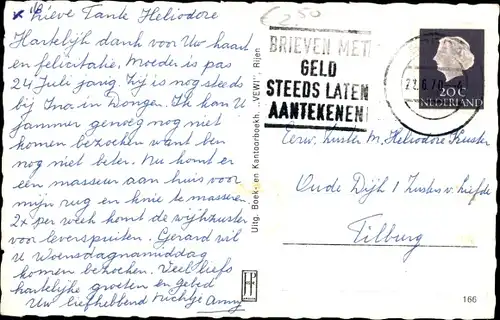 Lieve Tante Heliodore
Hartelijk dank voor Uw kaart
en felicitatie. Moeder is pas
24 Juli jarig. Zij is nog steeds
bij Ina in Dongen. Ik kan U
jammer genoeg nog niet
komen bezoeken want ben
nog niet beter. Nu komt er
een masseur aan huis voor
mijn rug en knie te masseren.
2x per week komt de wijkzuster
voor leverspuiten. Gerard wil
U Woensdagnamiddag
komen bezoeken. Veel liefs
hartelijke groeten en gebed
Uw liefhebbend nichtje Anny
Uitg. Boek- en Kantoorboekh. „VEWI", Rijen
2,50
BRIEVEN MET
GELD
STEEDS LATEN
AANTEKENEN!
20c
NEDERLAND
Eerw. Zuster M. Heliodore Kuster
Oude Dijk 1 Zusters v. Liefde
Tilburg
166